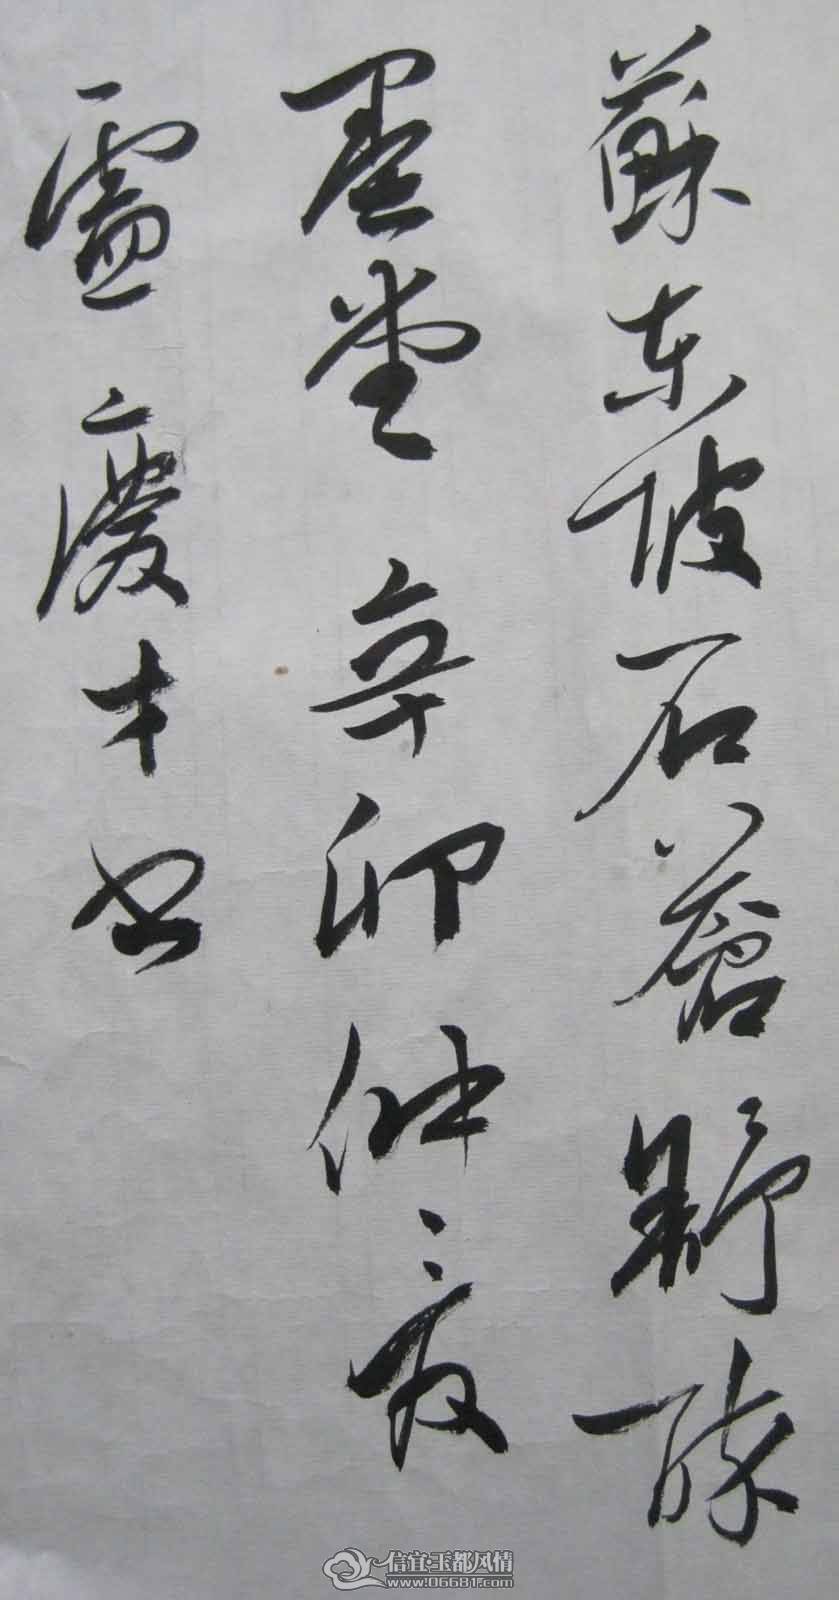 蘇東坡石蒼舒醉
墨堂 辛卯仲夏
盧慶才書
信宜·玉都风情
www.06681.com